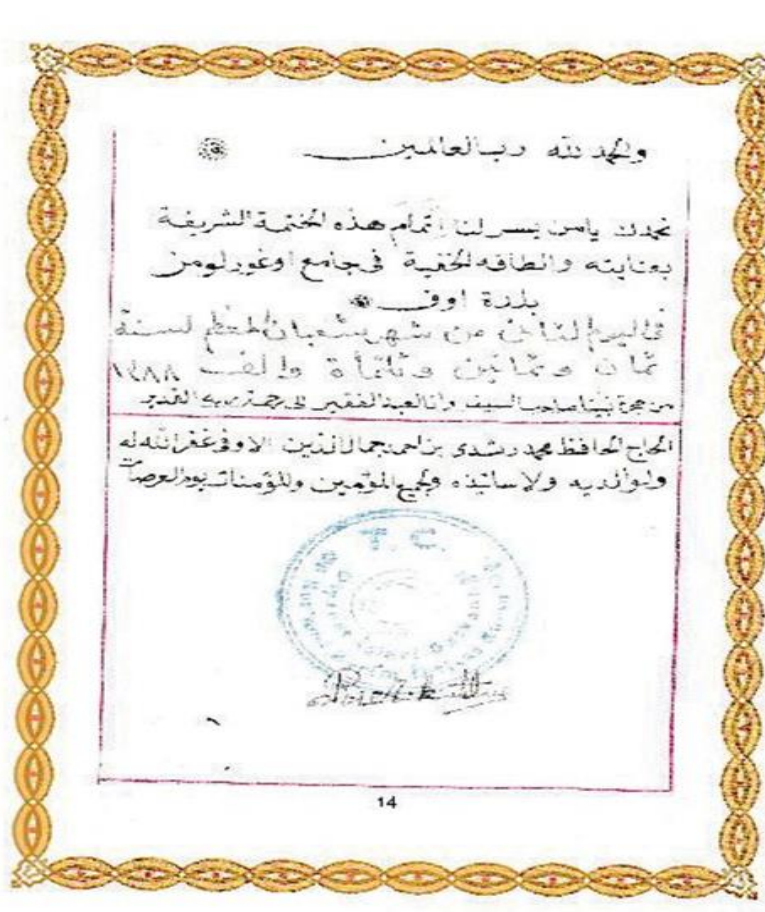 والحمد لله رب العالمين
نحمدك يا من يسر لنا إتمام هذه الختمة الشريفة
بعنايته والطافه الخفية في جامع اوغورلو من
بلدة اوف
في اليوم الثاني من شهر شعبان المعظم لسنة
ثمان وثمانين وثلثمأة والف ١٣٨٨
من هجرة نبينا صاحب السيف وانا العبد الفقير الى رحمة ربه القدير
الحاج الحافظ محمد رشدى بن احمد جمال الدين الاوفى غفر الله له
ولوالديه ولاساتيذه ولجميع المؤمنين والمؤمنات يوم العرصات
T. C.
14